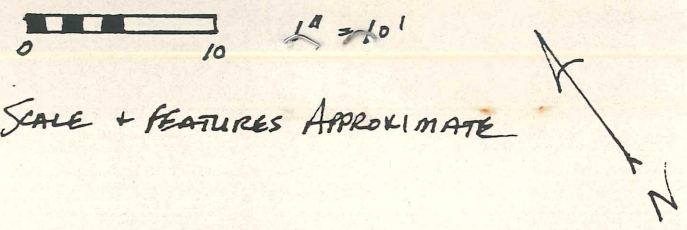 0 10 1" = 10'
SCALE + FEATURES APPROXIMATE
N